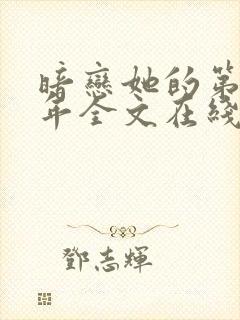 暗戀她的第
年全文在綫
鄧志輝